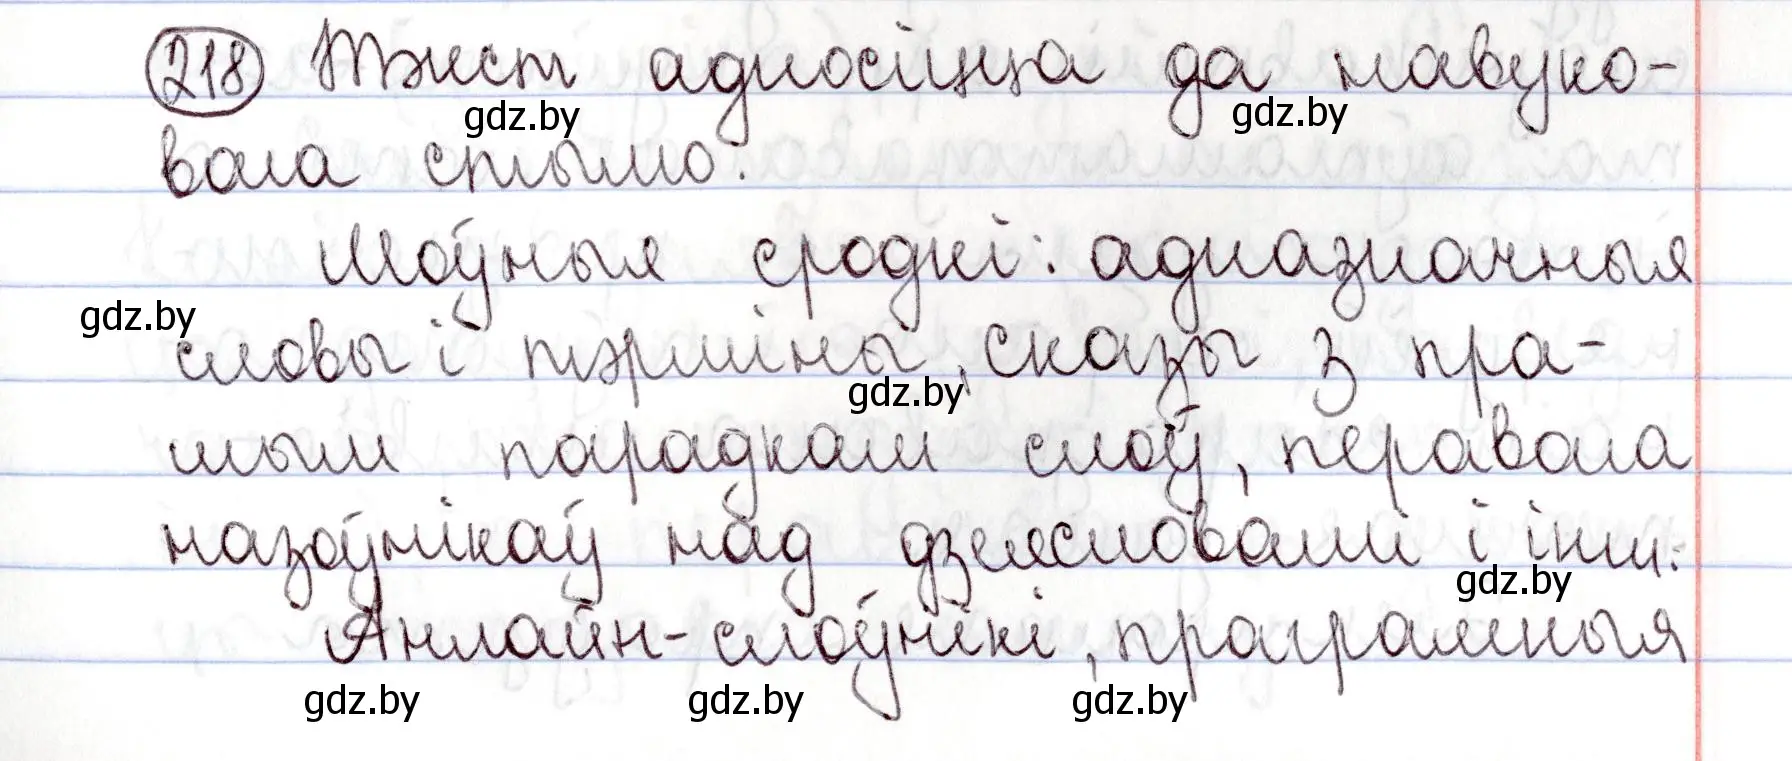 218 Тэкст адносіцца да навуко-
gdz.by gdz.by
вага стылю.
Моўныя сродкі: адназначныя
gdz.by
словы і тэрміны, сказы з пра-
gdz.by
мым парадкам слоў, перавага
назоўнікаў над дзеясловамі і інш.
gdz.by
Анлайн-слоўнікі, праграмныя
gdz.by gdz.by gdz.by